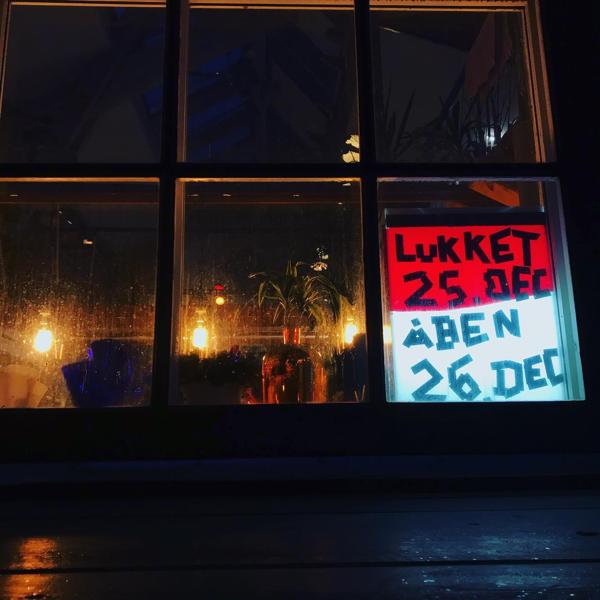 LUKKET
25. DEC
ÅBEN
26. DEC